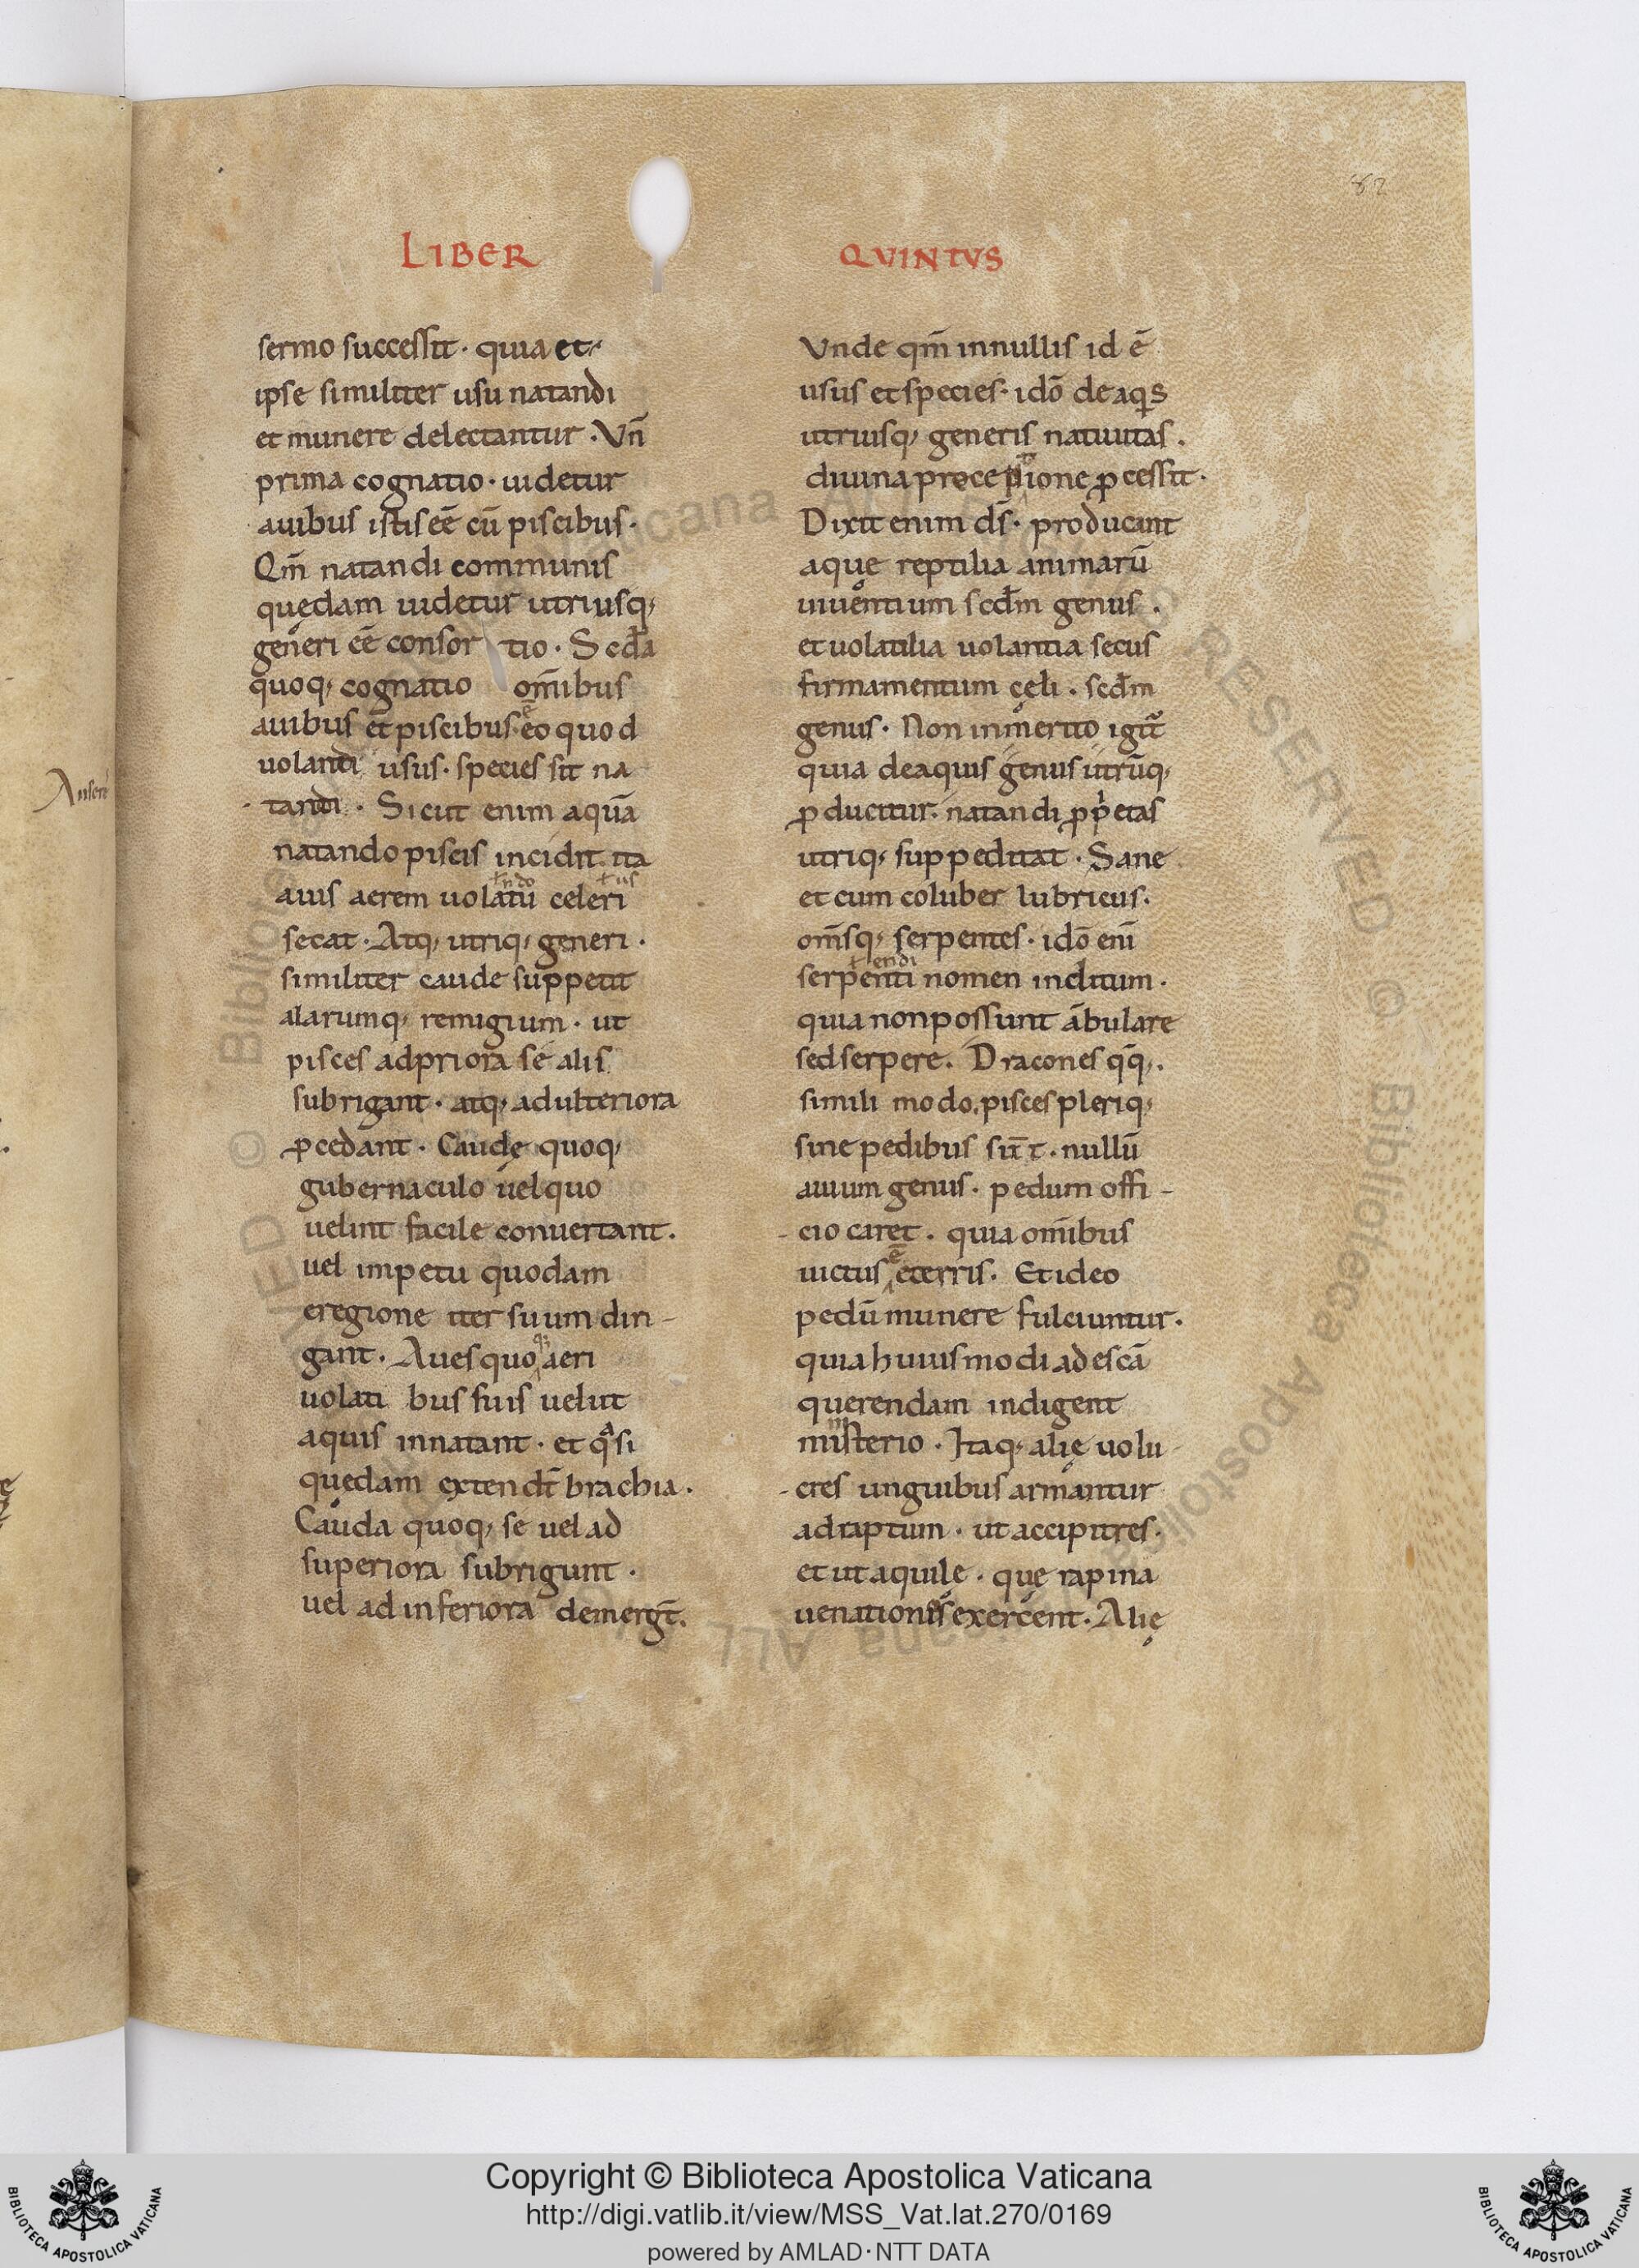 82
LIBER
sermo successit· quia et
ipse similiter usu natandi
et munere delectantur· Vñ
prima cognatio· uidetur
auibus istis eē cū piscibus·
Qm̄ natandi communis
quędam uidetur utriusq;
generi eē consor tio· Scd̄a
quoq; cognatio om̄ibus
auibus et piscibus ē eo quod
uolandi usus· species sit na
tandi· Sicut enim aquā
natando piscis incidit ita
ł ndo ł us
auis aerem uolatu celeri
secat· Atq; utriq; generi·
similiter caude suppetit
alarumq; remigium· ut
pisces adpriora se alis
subrigant· atq; adulteriora
ꝓcedant· Caudę quoq;
gubernaculo uelquo
uelint facile conuertant·
uel impetu quodam
eregione iter suum diri-
gant· Aues quoq; aeri
uolati bus suis uelut
aquis innatant· et qͣsi
quędam extendt̄ brachia·
Cauda quoq; se uel ad
superiora subrigunt·
uel ad inferiora demergt̄·
QVINTVS
Vnde qm̄ innullis id ē
usus et species· idō de aqͥs
utriusq; generis natiuitas·
diuina preceptione ꝓcessit·
Dixit enim ds̄· producant
aque reptilia animarū
uiuentium scd̄m genus·
et uolatilia uolantia secus
firmamentum cęli· scd̄m
genus· Non inmerito igit̄
quia deaquis genus utrūq;
ꝓducitur· natandi ꝓpͥetas
utriq; suppeditat· Sane
et cum coluber lubricus·
om̄sq; serpentes· idō eni̅
ł endi
serpenti nomen inditum·
quia nonpossunt ābulare
sed serpere· Dracones qq̄;·
simili modo, pisces pleriq;
sine pedibus sit̄· nullū
auium genus· pedum offi-
cio caret· quia om̄ibus
uictus ē eterris· Et ideo
pedū munere fulciuntur·
quia huiusmodi ad escā
querendam indigent
ministerio· Itaq; alię uolu
cres unguibus armantur
ad raptum· ut accipitres·
et ut aquile· quę rapina
uenationis exercent· Alię
Ansere
Copyright © Biblioteca Apostolica Vaticana
http://digi.vatlib.it/view/MSS_Vat.lat.270/0169
powered by AMLAD·NTT DATA
BIBLIOTECA APOSTOLICA VATICANA
BIBLIOTECA APOSTOLICA VATICANA